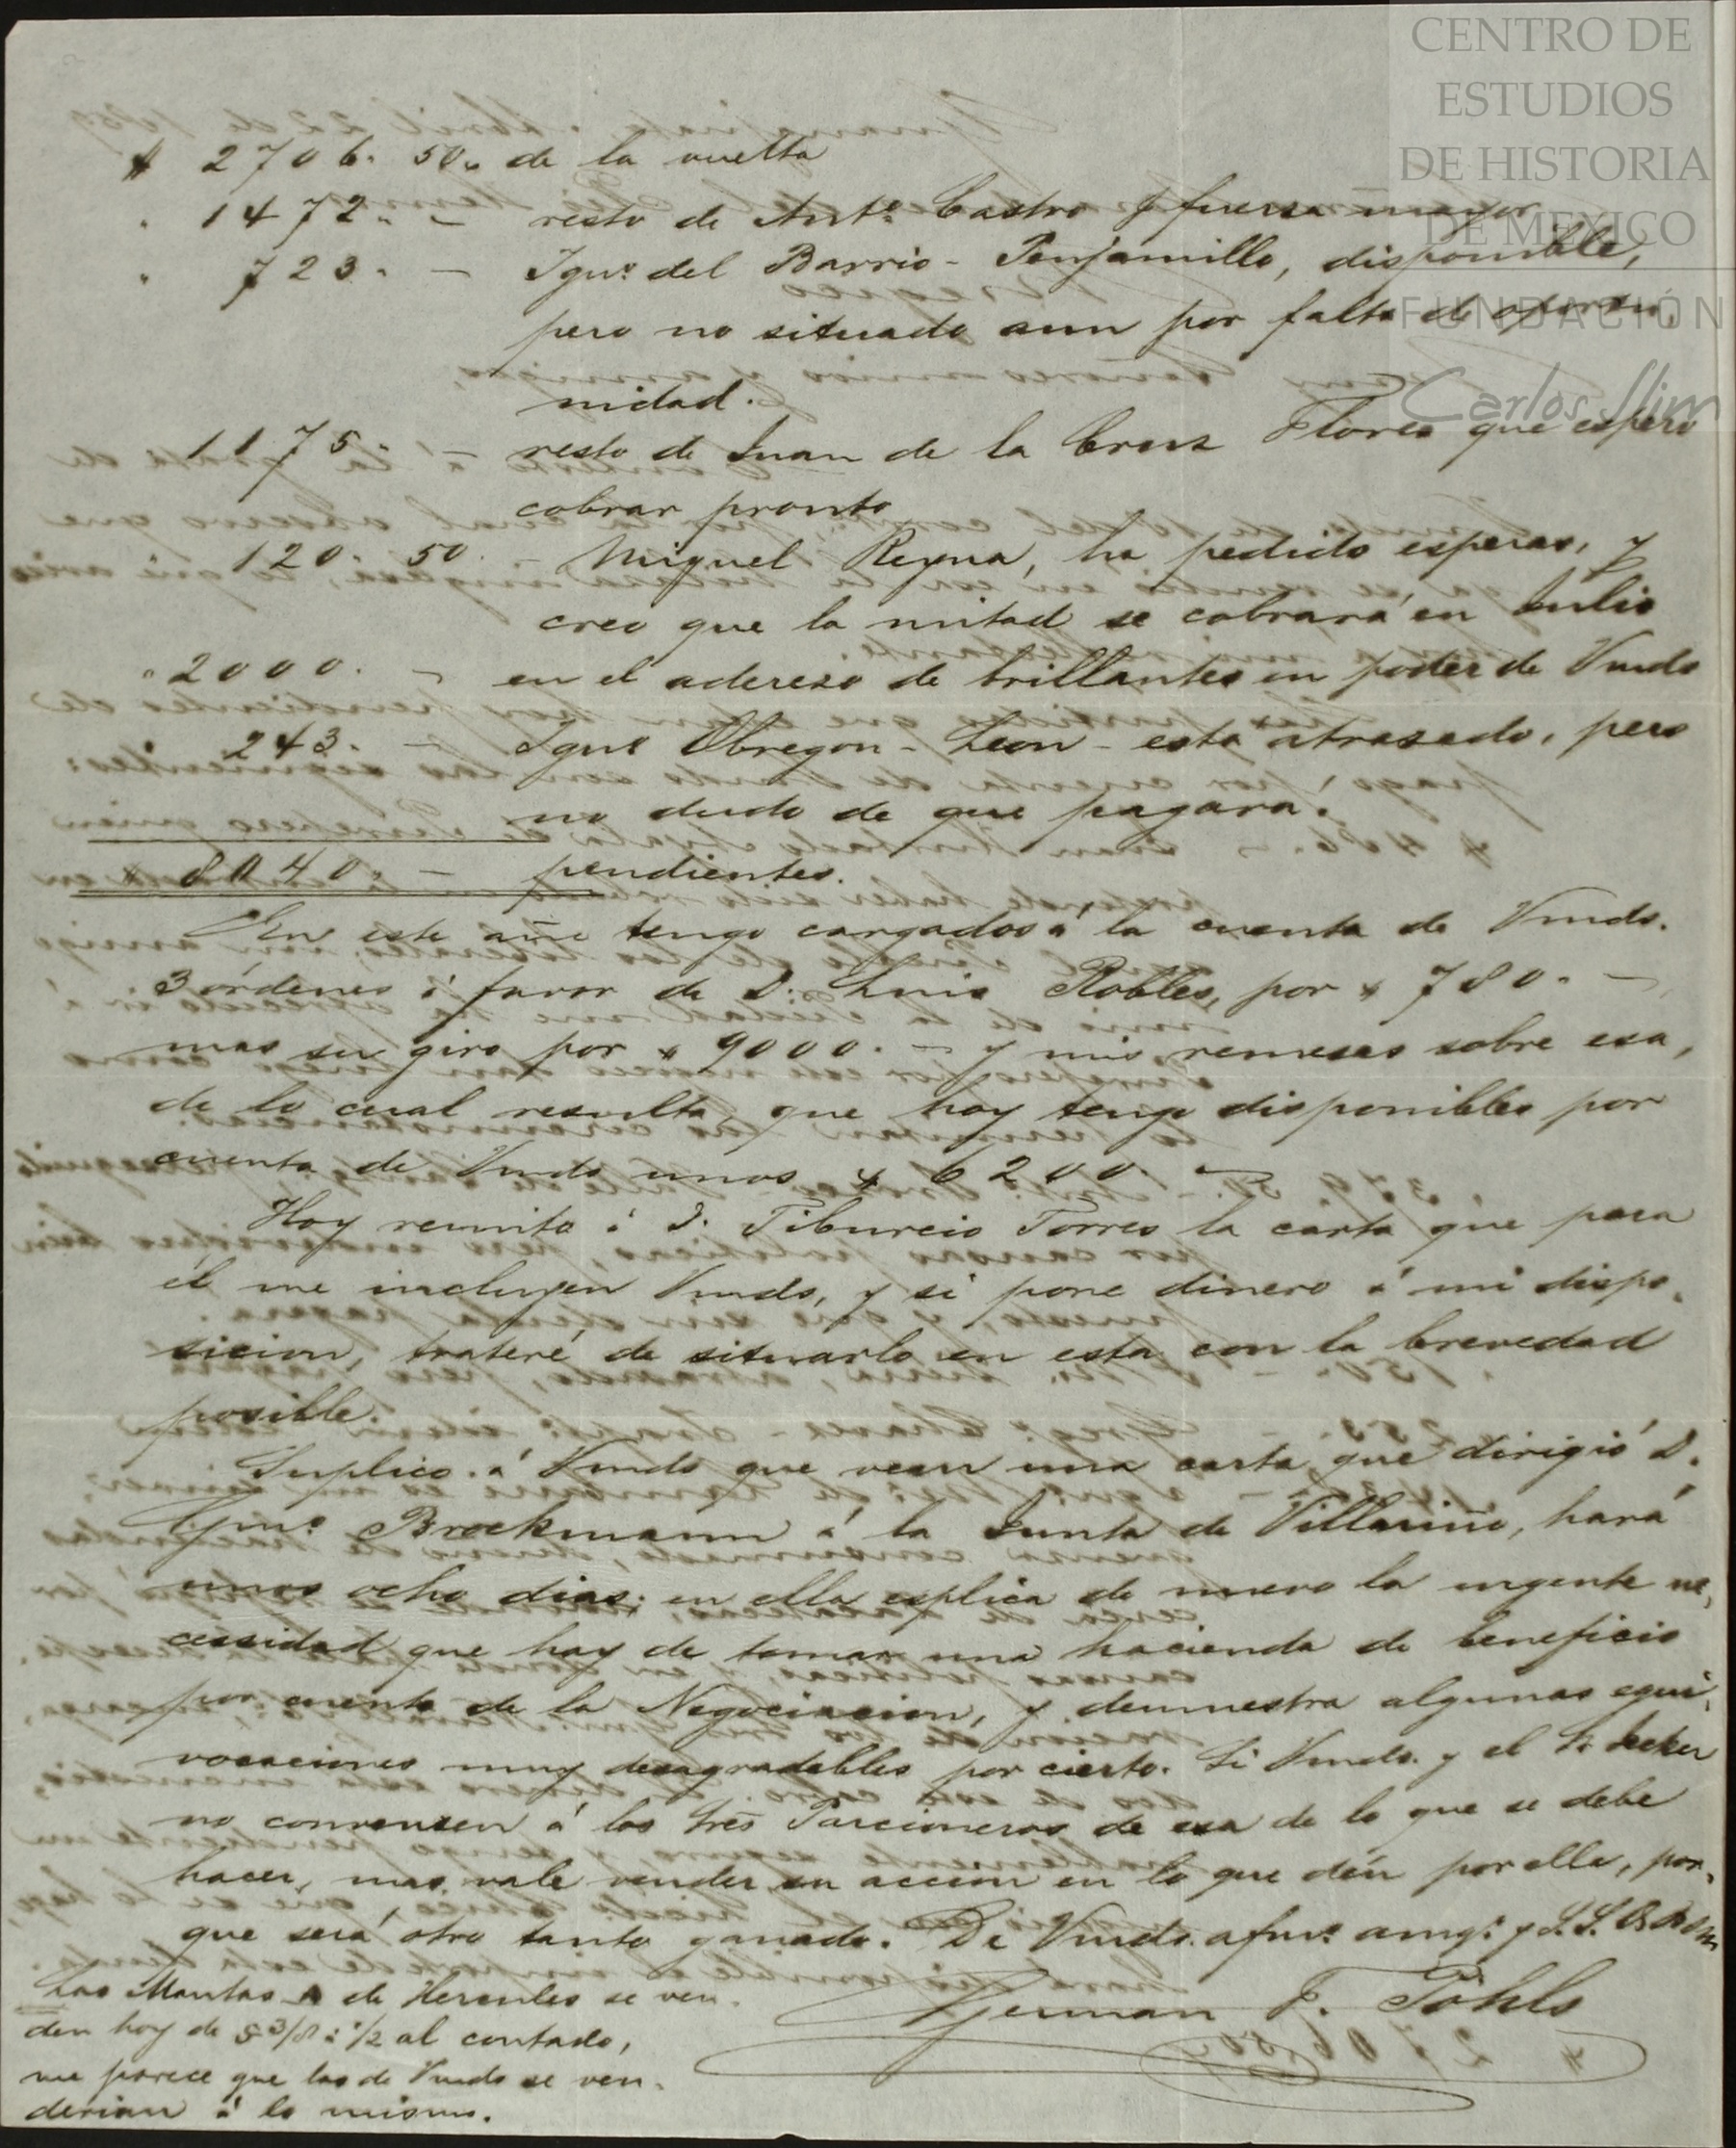 CENTRO DE
ESTUDIOS
DE HISTORIA
DE MÉXICO
FUNDACIÓN
Carlos Slim
$ 2706. 50. de la vuelta
" 1472. " — resto de Anto. Castro y fuerza mayor
" 723. — Igno. del Barrio - Penjamillo, disponible,
pero no situado aun por falta de oportu-
nidad.
1175. — resto de Juan de la Cruz Flores que espero
cobrar pronto
120. 50. — Miguel Reyna, ha pedido esperas, y
creo que la mitad se cobrará en Julio
" 2000. — en el aderezo de brillantes en poder de Vmds
243. — Igno. Obregon - Leon - está atrasado, pero
no dudo de que pagará.
$ 8440. — pendientes.
En este año tengo cargados á la cuenta de Vmds.
3 órdenes á favor de D. Luis Robles, por $ 780. —
mas su giro por $ 9000. — y mis remesas sobre esa,
de lo cual resulta que hoy tengo disponibles por
cuenta de Vmds unos $ 6200. —
Hoy remito á D. Tiburcio Torres la carta que para
él me incluyen Vmds, y si pone dinero á mi dispo-
sicion, trateré de situarlo en esta con la brevedad
posible.
Suplico á Vmds que vean una carta que dirigió D.
Gmo. Brockmann á la Junta de Villariño, hará
unos ocho dias; en ella esplica de nuevo la urgente ne-
cessidad que hay de tomar una hacienda de beneficio
por cuenta de la Negociacion, y demuestra algunas equi-
vocaciones muy desagradables por cierto. Si Vmds. y el Sr
no convensen á los Sres Parcioneros de esa de lo que se debe
hacer, mas vale vender su accion en lo que dén por ella, por-
que será otro tanto ganado. De Vmds. afmo. amgo. y S. S. Q B S M
German F. Pohls
Las Mantas de Hercules se ven-
den hoy de 5 3/8 á 1/2 al contado,
me parece que las de Vmds se ven-
derian á lo mismo.